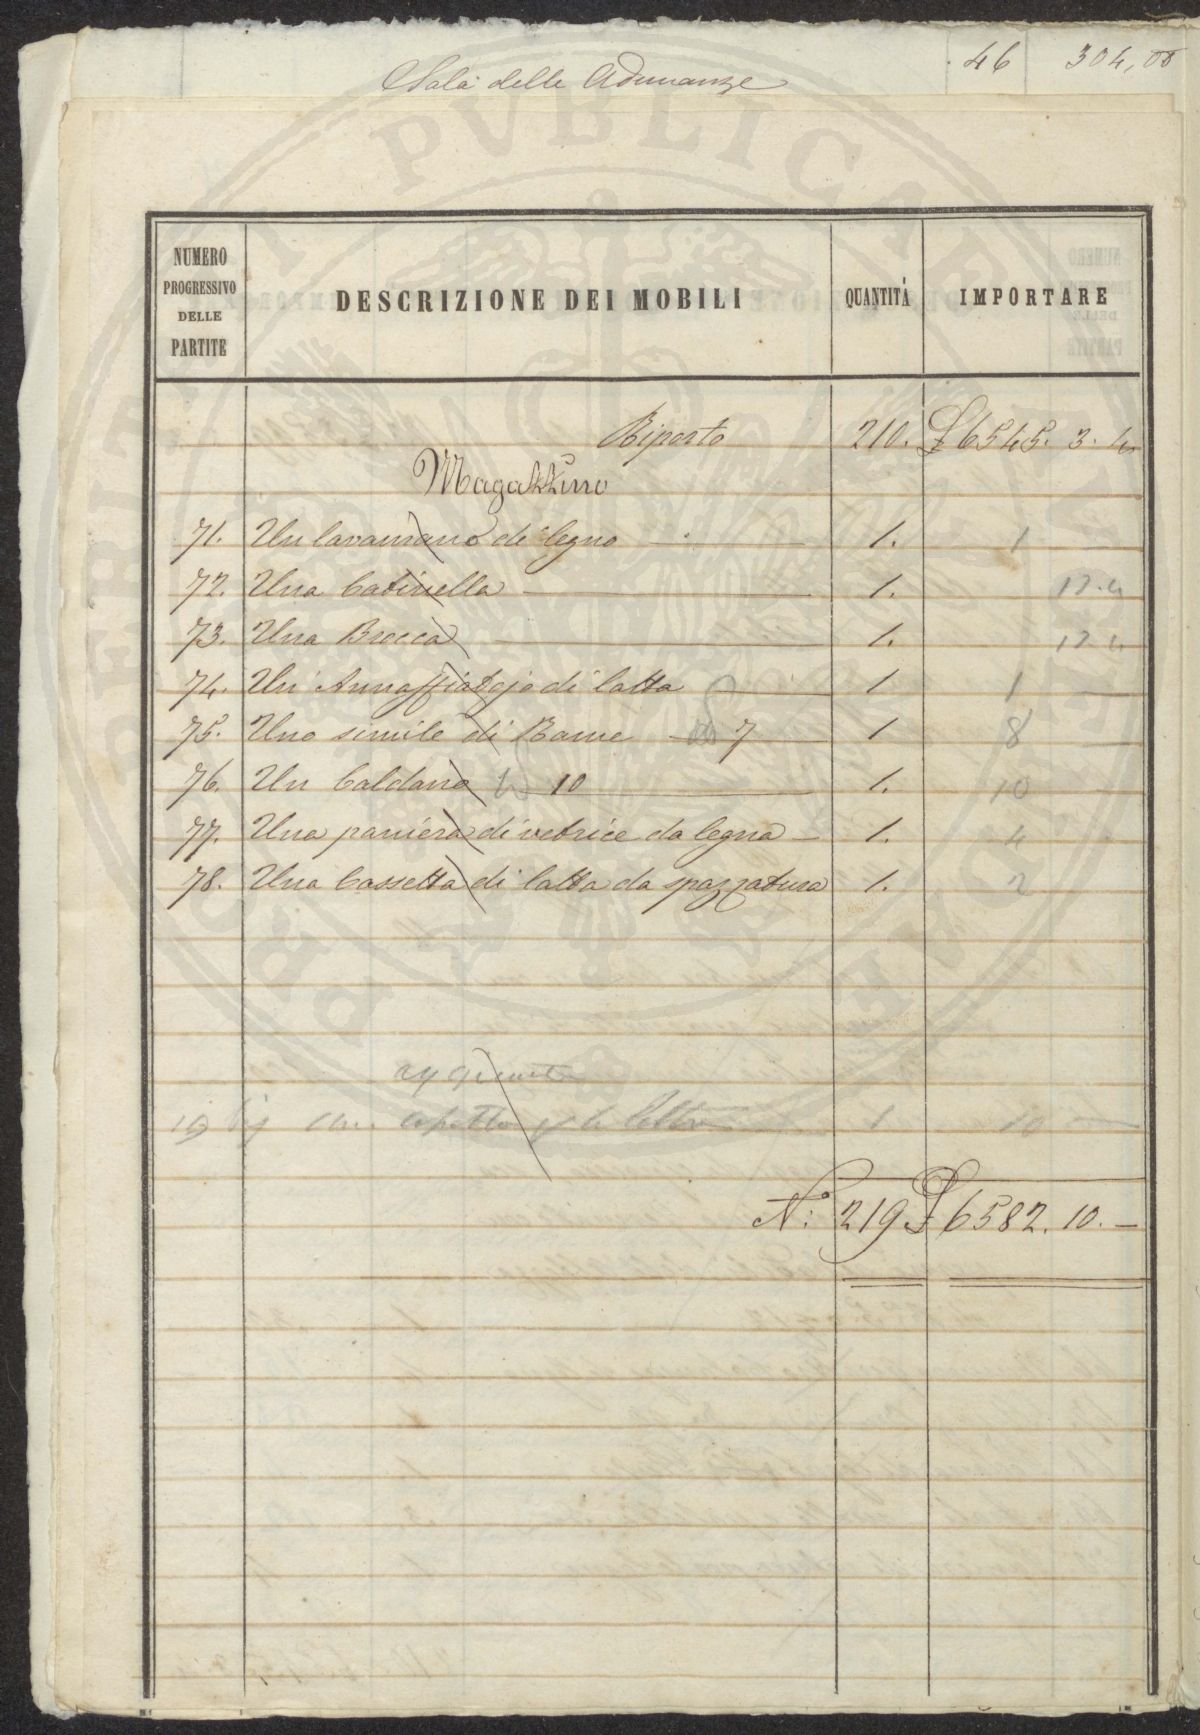 46 304,00
Sala delle Adunanze
NUMERO PROGRESSIVO DELLE PARTITE
DESCRIZIONE DEI MOBILI
QUANTITÁ
IMPORTARE
Riporto 210. £ 6545. 3. 4
Magazzino
71. Un lavamano di legno — 1. 1 —
72. Una Catinella — 1. 13.4
73. Una Brocca — 1. 13 4
74. Un Annaffiatojo di latta — 1 1 —
75. Uno simile di Rame 7 — 1 8 —
76. Un Caldano 10 — 1. 10 —
77. Una paniera di vetrice da legna — 1. 4
78. Una Cassetta di latta da spazzatura 1. 2
1 10 —
N: 219 £ 6582. 10. —